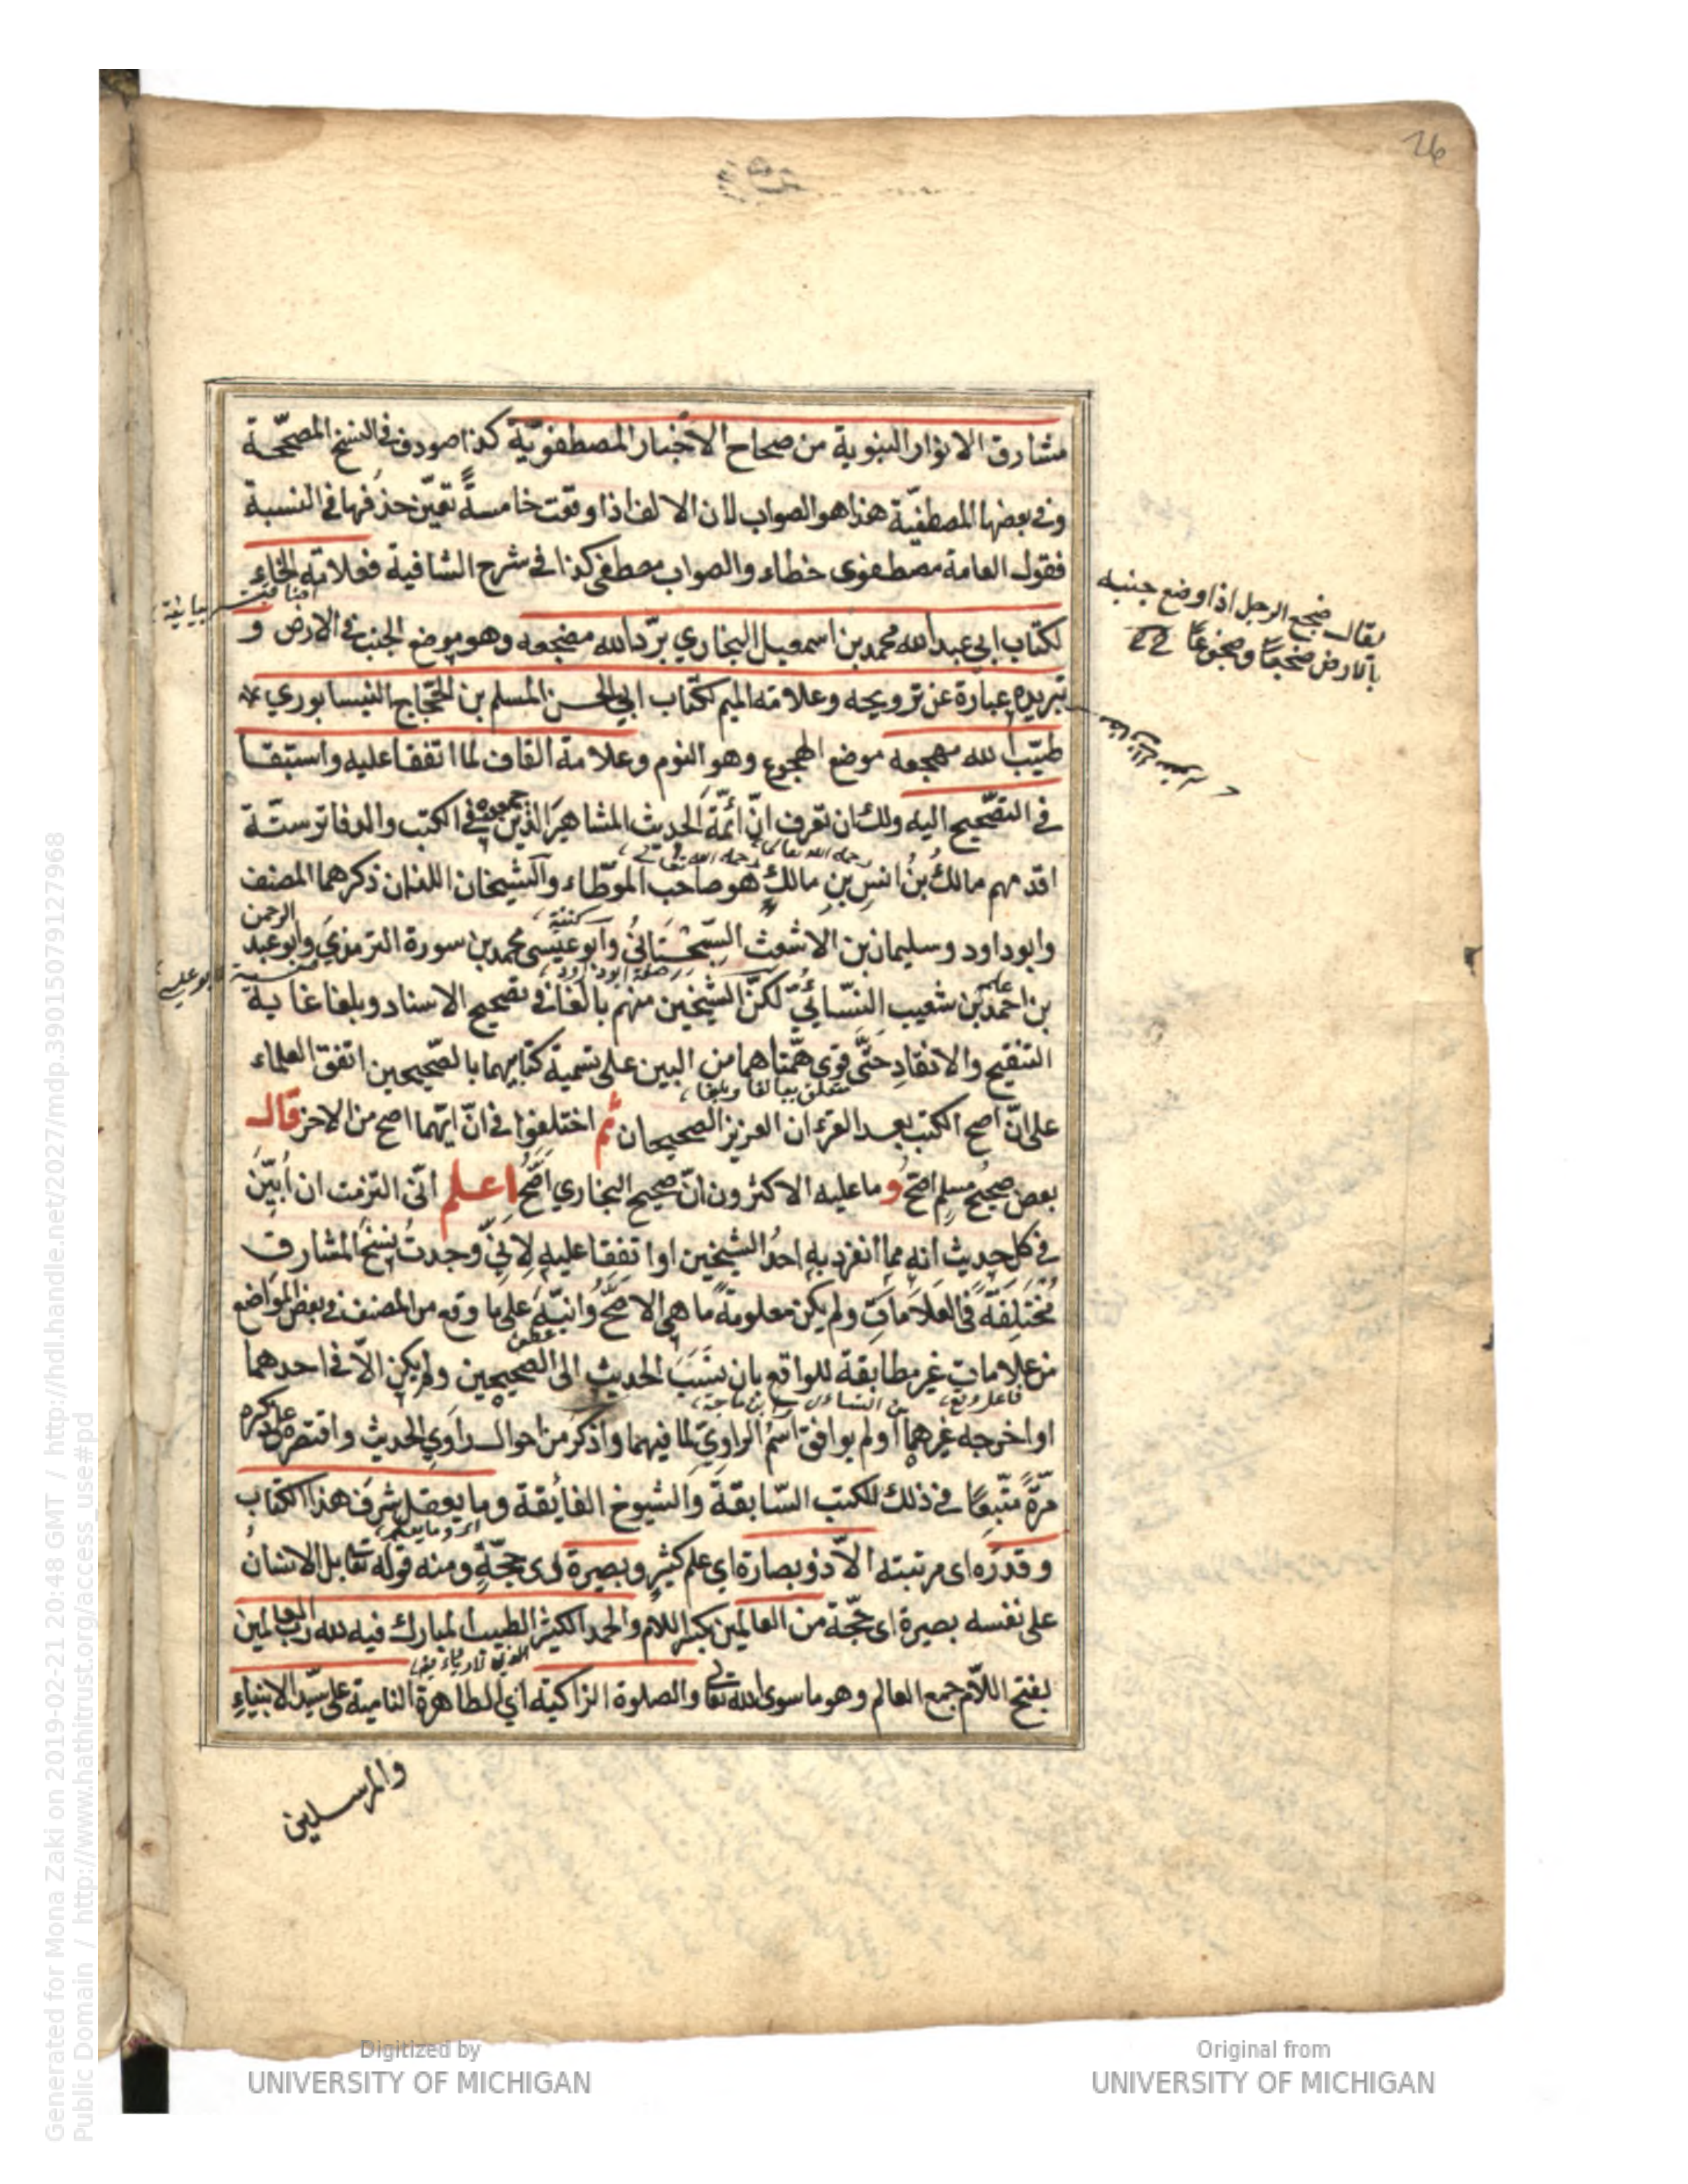 26
مشارق الانوار النبوية من صحاح الاخبار المصطفوية كذا صودف في النسخ المصححة
وفي بعضها المصطفية هذا هو الصواب لان الالف اذا وقعت خامسةً تعيّن حذفها في النسبة
فقول العامة مصطفوى خطاء والصواب مصطفى كذا في شرح الشافية فعلامته الخاء
لكتاب ابي عبد الله محمد بن اسمعيل البخاري برّد الله مضجعه وهو موضع الجنب في الارض و
تبريده عبارة عن ترويحه وعلامته الميم لكتاب ابي الحسن المسلم بن الحجّاج النيسابوري
طيّب الله مهجعه موضع الهجوع وهو النوم وعلامة القاف لما اتفقا عليه واستبقا
في التصحيح اليه ولك ان تعرف انّ ائمّة الحديث المشاهير الذين في الكتب والدفاتر ستّة
اقدمهم مالك بنُ انسِ بنِ مالكٍ هو صاحب الموطّاء والشيخان اللذان ذكرهما المصنف
رحمه الله تعالى
وابو داود وسليمان بن الاشعث السّجستانيُّ وابو عيسى محمد بن سورة الترمذي وابو عبد الرحمن
بن احمد بن شعيب النسّائيُّ لكنّ الشيخين منهم بالغا في تصحيح الاسناد وبلغا غاية
التنقيح والانتقاد حتّى قوى همّتاهما من البين على تسمية كتابيهما بالصّحيحين اتفق العلماء
متعلق ببالغا وبلغا
على انّ اصح الكتب بعد القرءان العزيز الصحيحان ثم اختلفوا في انّ ايّهما اصح من الاخر قال
بعض صحيحُ مسلمٍ اصحّ وما عليه الاكثرون انّ صحيح البخاري اصحُّ اعلم انّى التزمت ان ابيّن
في كل حديث انه مما انفرد به احدُ الشيخين او اتفقا عليه لانيّ وجدتُ نسخ المشارق
مُختلِفَةً في العَلاَمَاتِ ولم يكن معلومةً ما هي الاصحّ وانبّهَ على ما وقع من المصنف في بعض المواضع
من علاماتٍ غير مطابقة للواقع بان ينسَبَ الحديث الى الصحيحين ولم يكن الاّ في احدهما
او اخرجه غيرهما او لم يوافق اسمُ الراويّ لما فيهما واذكر من احوال راوي الحديث واقتصر على ذكره
مرّةً متّبعًا في ذلك للكتب السّابقة والشيوخ الفايقة وما يعقل شرفَ هذا الكتاب
وقدره اى مرتبته الاّ ذو بصارة اي علم كثيرٍ وبصيرة اى حجّةٍ ومنه قوله تعالى بل الانسانُ
على نفسه بصيرة اى حجّة من العالِمين بكسر اللام والحمد الكثير الطيب المبارك فيه لله رب العالمين
بفتح اللاّم جمع العالم وهو ما سوى الله تعالى والصلوة الزاكية اي الطاهرة النامية على سيّد الانبياءِ
والمرسلين
يقال ضجع الرجل اذا وضع جنبه
بالارض ضجعًا وضجوعًا
Generated for Mona Zaki on 2019-02-21 20:48 GMT / http://hdl.handle.net/2027/mdp.39015079127968
Public Domain / http://www.hathitrust.org/access_use#pd
Digitized by
UNIVERSITY OF MICHIGAN
Original from
UNIVERSITY OF MICHIGAN